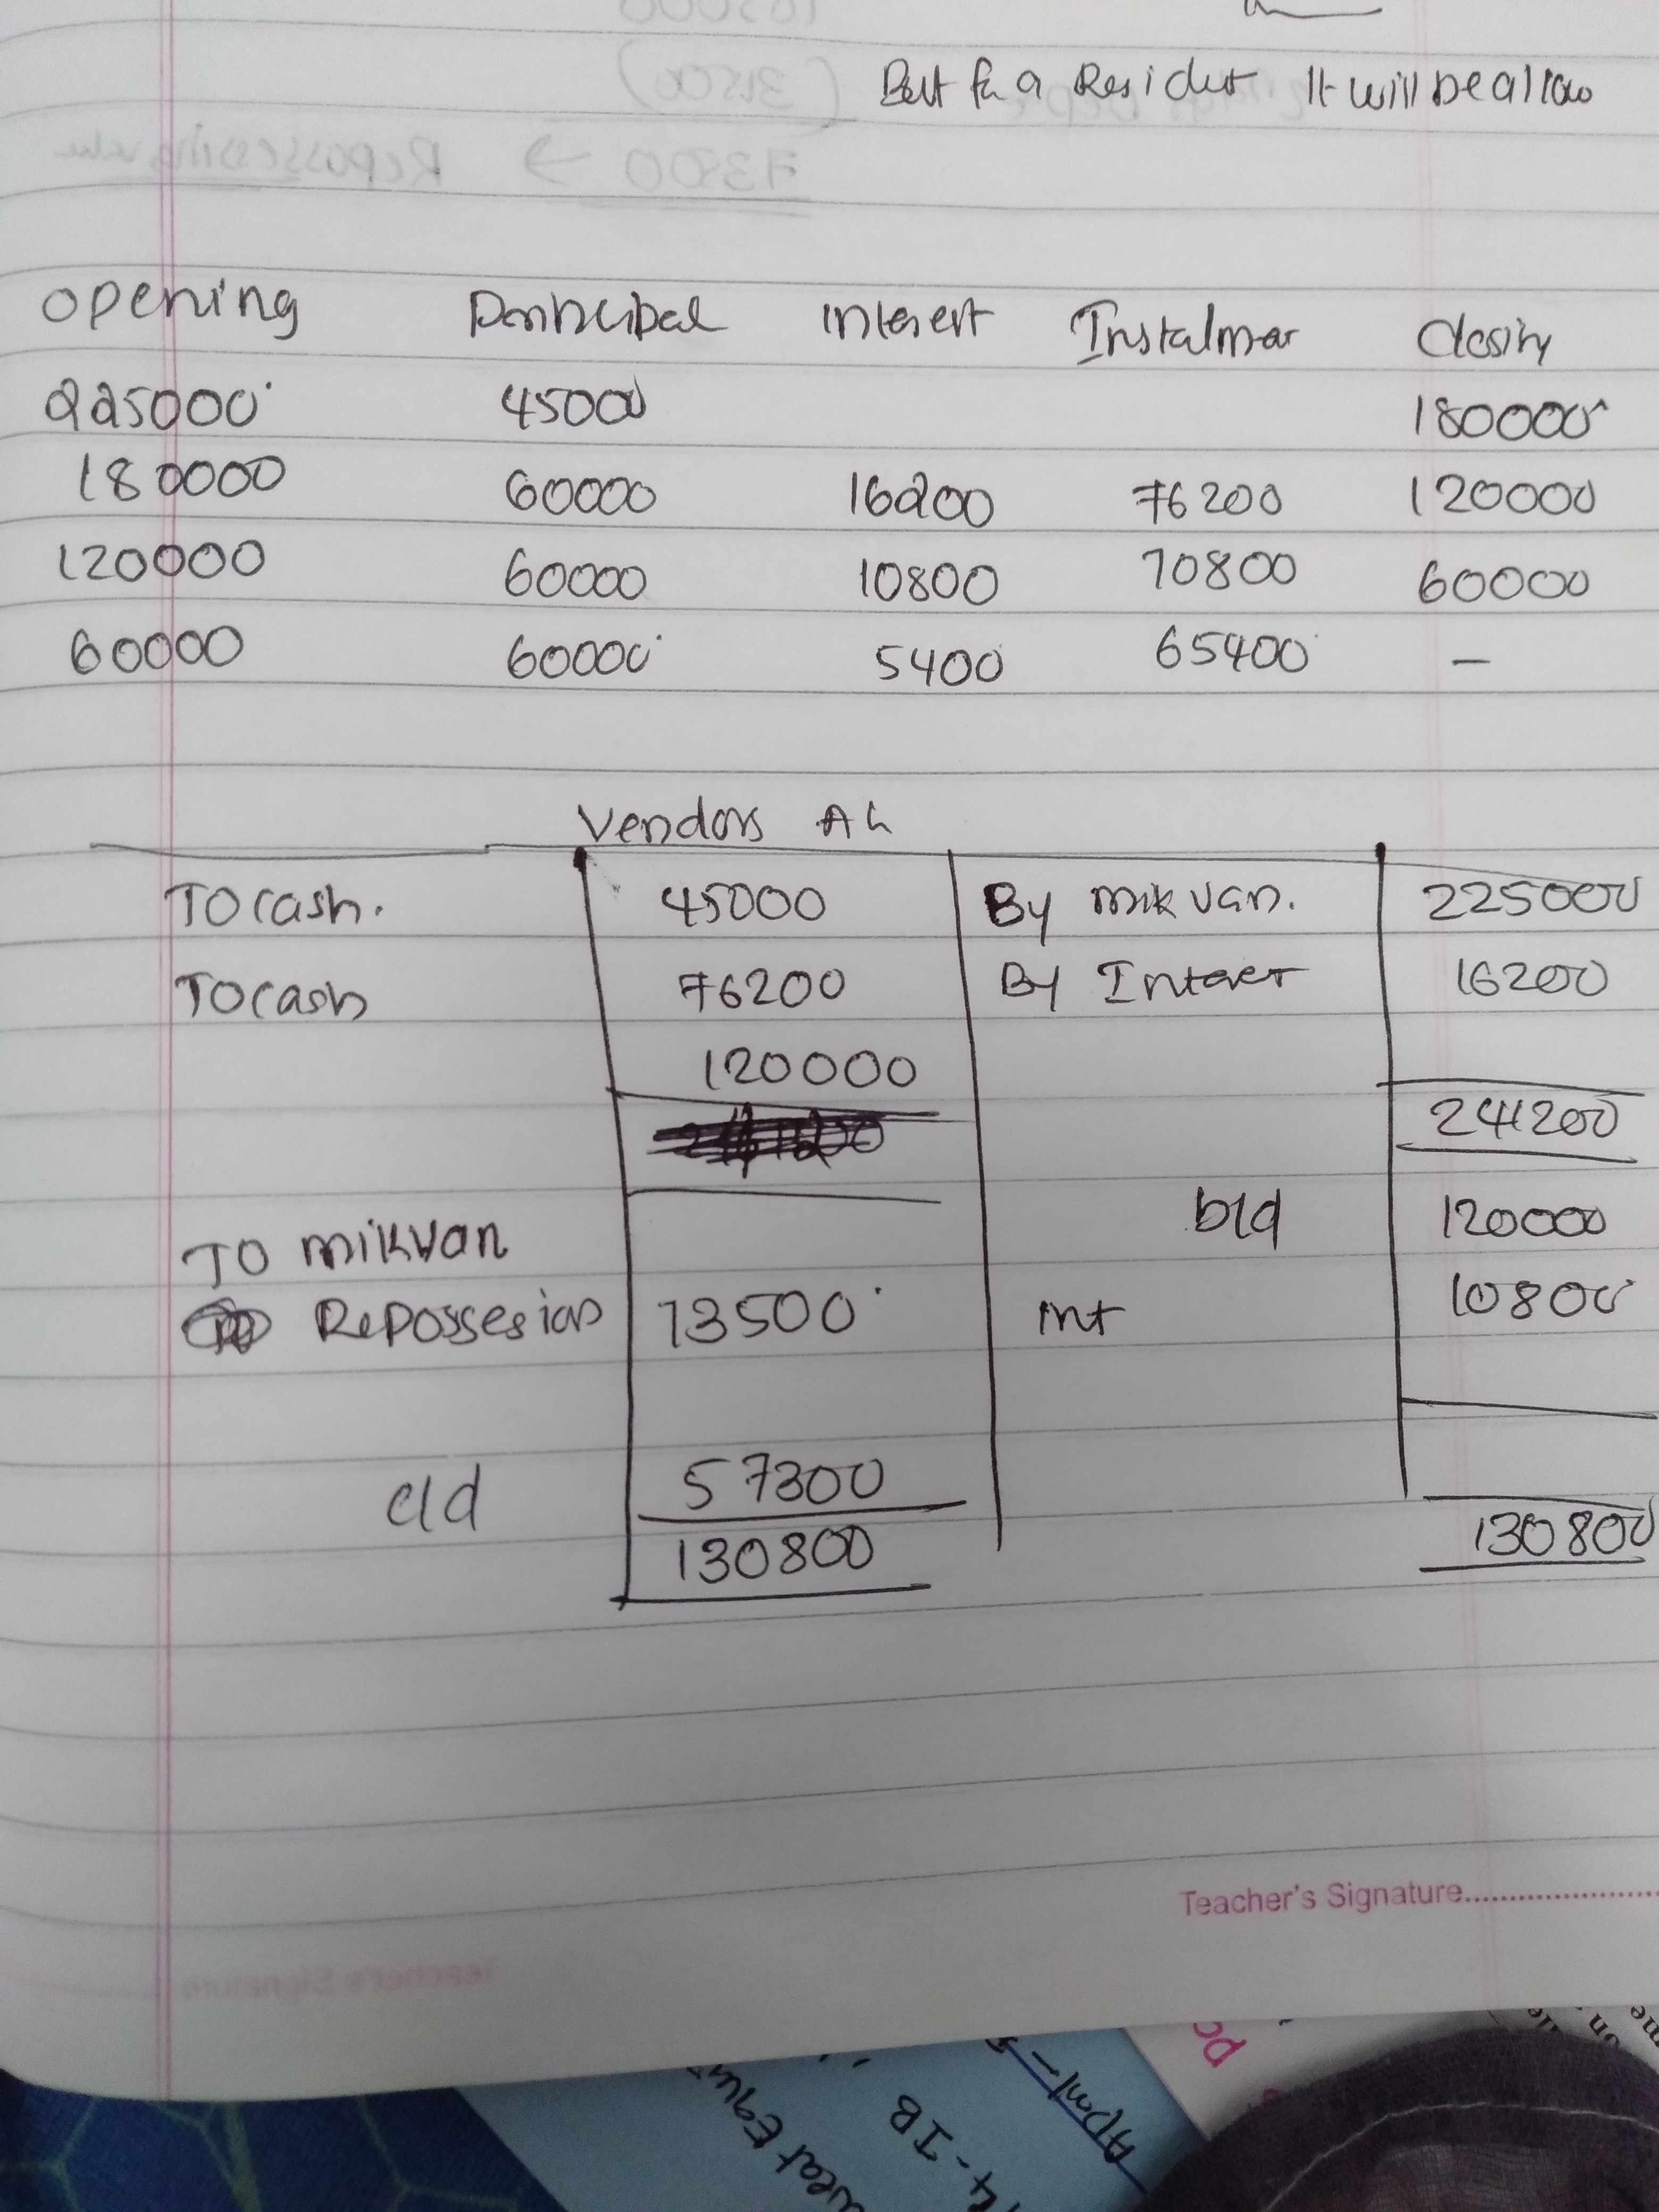 But for a Resident It will be allow
Opening Principal Interest Instalmer Closing
225000 45000 180000
180000 60000 16200 76200 120000
120000 60000 10800 70800 60000
60000 60000 5400 65400 —
Vendors A/c
TO cash. 45000 By mik van. 225000
TO cash 76200 By Interer 16200
120000
241200
b/d 120000
TO mik van
Repossesion 73500 int 10800
c/d 57300
130800 130800
Teacher's Signature